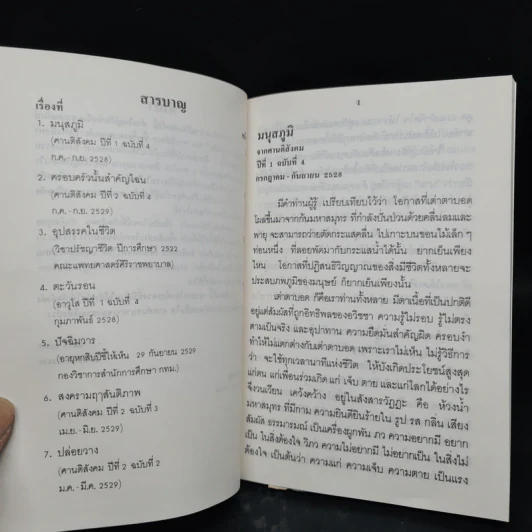 สารบาญ
เรื่องที่
1. มนุสภูมิ
(ศานติสังคม ปีที่ 1 ฉบับที่ 4
ก.ค. - ก.ย. 2528)
2. ครอบครัวนั้นสำคัญไฉน
(ศานติสังคม ปีที่ 2 ฉบับที่ 4
ก.ค. - ก.ย. 2529)
3. อุปสรรคในชีวิต
(วิชาปรัชญาชีวิต ปีการศึกษา 2522
คณะแพทยศาสตร์ศิริราชพยาบาล)
4. ตะวันรอน
(อาวุโส ปีที่ 1 ฉบับที่ 4
กุมภาพันธ์ 2528)
5. ปัจฉิมวาร
(อายุหกสิบปีชี้ให้เห็น 29 กันยายน 2529
กองวิชาการสำนักการศึกษา กทม.)
6. สงครามฤๅสันติภาพ
(ศานติสังคม ปีที่ 2 ฉบับที่ 3
เม.ย. - มิ.ย. 2529)
7. ปล่อยวาง
(ศานติสังคม ปีที่ 2 ฉบับที่ 2
ม.ค. - มี.ค. 2529)
มนุสภูมิ
จากศานติสังคม
ปีที่ 1 ฉบับที่ 4
กรกฎาคม - กันยายน 2528
มีคำท่านผู้รู้ เปรียบเทียบไว้ว่า โอกาสที่เต่าตาบอด
โผล่ขึ้นมาจากก้นมหาสมุทร ที่กำลังปั่นป่วนด้วยคลื่นลมและ
พายุ จะสามารถว่ายตัดกระแสคลื่น ไปเกาะบนขอนไม้เล็ก ๆ
ท่อนหนึ่ง ที่ลอยพัดมากับกระแสน้ำได้นั้น ยากเย็นเพียง
ไหน โอกาสที่ปฏิสนธิวิญญาณของสิ่งมีชีวิตทั้งหลายจะ
ประสบภพภูมิของมนุษย์ ก็ยากเย็นเพียงนั้น
เต่าตาบอด ก็คือเราท่านทั้งหลาย มีตาเนื้อที่เป็นปกติดี
อยู่แต่สัมผัสที่ถูกอิทธิพลของอวิชชา ความรู้ไม่รอบ รู้ไม่ตรง
ตามเป็นจริง และอุปาทาน ความยึดมั่นสำคัญผิด ครอบงำ
ทำให้ไม่แตกต่างกับเต่าตาบอด เพราะเราไม่เห็น ไม่รู้วิธีการ
ว่า จะใช้ทุกเวลานาทีแห่งชีวิต ให้บังเกิดประโยชน์สูงสุด
แก่ตน แก่เพื่อนร่วมเกิด แก่ เจ็บ ตาย และแก่โลกได้อย่างไร
จึงวนเวียน เคว้งคว้าง อยู่ในสังสารวัฏฏะ คือ ห้วงน้ำ
มหาสมุทร ที่มีกาม ความยินดียินร้ายใน รูป รส กลิ่น เสียง
สัมผัส ธรรมารมณ์ เป็นเครื่องผูกพัน ภว ความอยากมี อยาก
เป็น ในสิ่งต้องใจ วิภว ความไม่อยากมี ไม่อยากเป็น ในสิ่งไม่
ต้องใจ เป็นต้นว่า ความแก่ ความเจ็บ ความตาย เป็นแรง